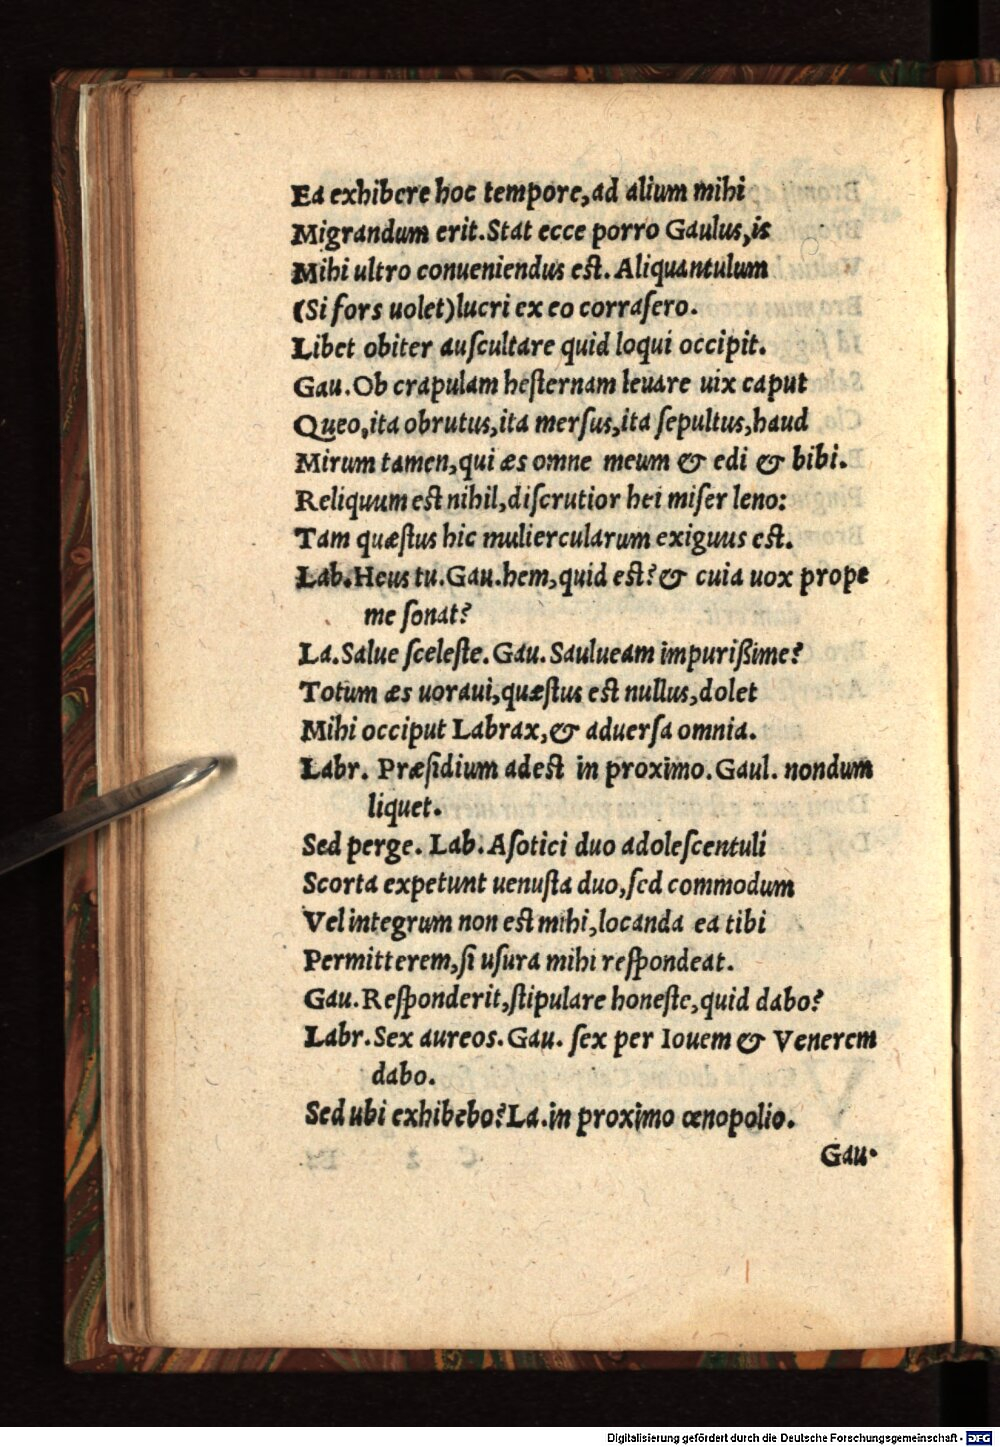 Ea exhibere hoc tempore,ad alium mihi
Migrandum erit.Stat ecce porro Gaulus,is
Mihi ultro conueniendus est. Aliquantulum
(Si fors uolet)lucri ex eo corraſero.
Libet obiter auſcultare quid loqui occipit.
Gau.Ob crapulam heſternam leuare uix caput
Queo,ita obrutus,ita merſus,ita ſepultus,haud
Mirum tamen,qui æs omne meum & edi & bibi.
Reliquum est nihil,diſcrutior hei miſer leno:
Tam quæſtus hic muliercularum exiguus est.
Lab.Heus tu.Gau.hem,quid est?& cuia uox prope
me ſonat?
La.Salue ſceleſte.Gau.Saulueam impurißime?
Totum æs uoraui,quæſtus est nullus,dolet
Mihi occiput Labrax,& aduerſa omnia.
Labr. Præſidium adest in proximo.Gaul. nondum
liquet.
Sed perge. Lab.Aſotici duo adoleſcentuli
Scorta expetunt uenuſta duo,ſed commodum
Vel integrum non est mihi,locanda ea tibi
Permitterem,ſi uſura mihi reſpondeat.
Gau.Reſponderit,ſtipulare honeſte,quid dabo?
Labr.Sex aureos.Gau. ſex per Iouem & Venerem
dabo.
Sed ubi exhibebo?La.in proximo œnopolio.
Gau.
Digitalisierung gefördert durch die Deutsche Forschungsgemeinschaft - DFG